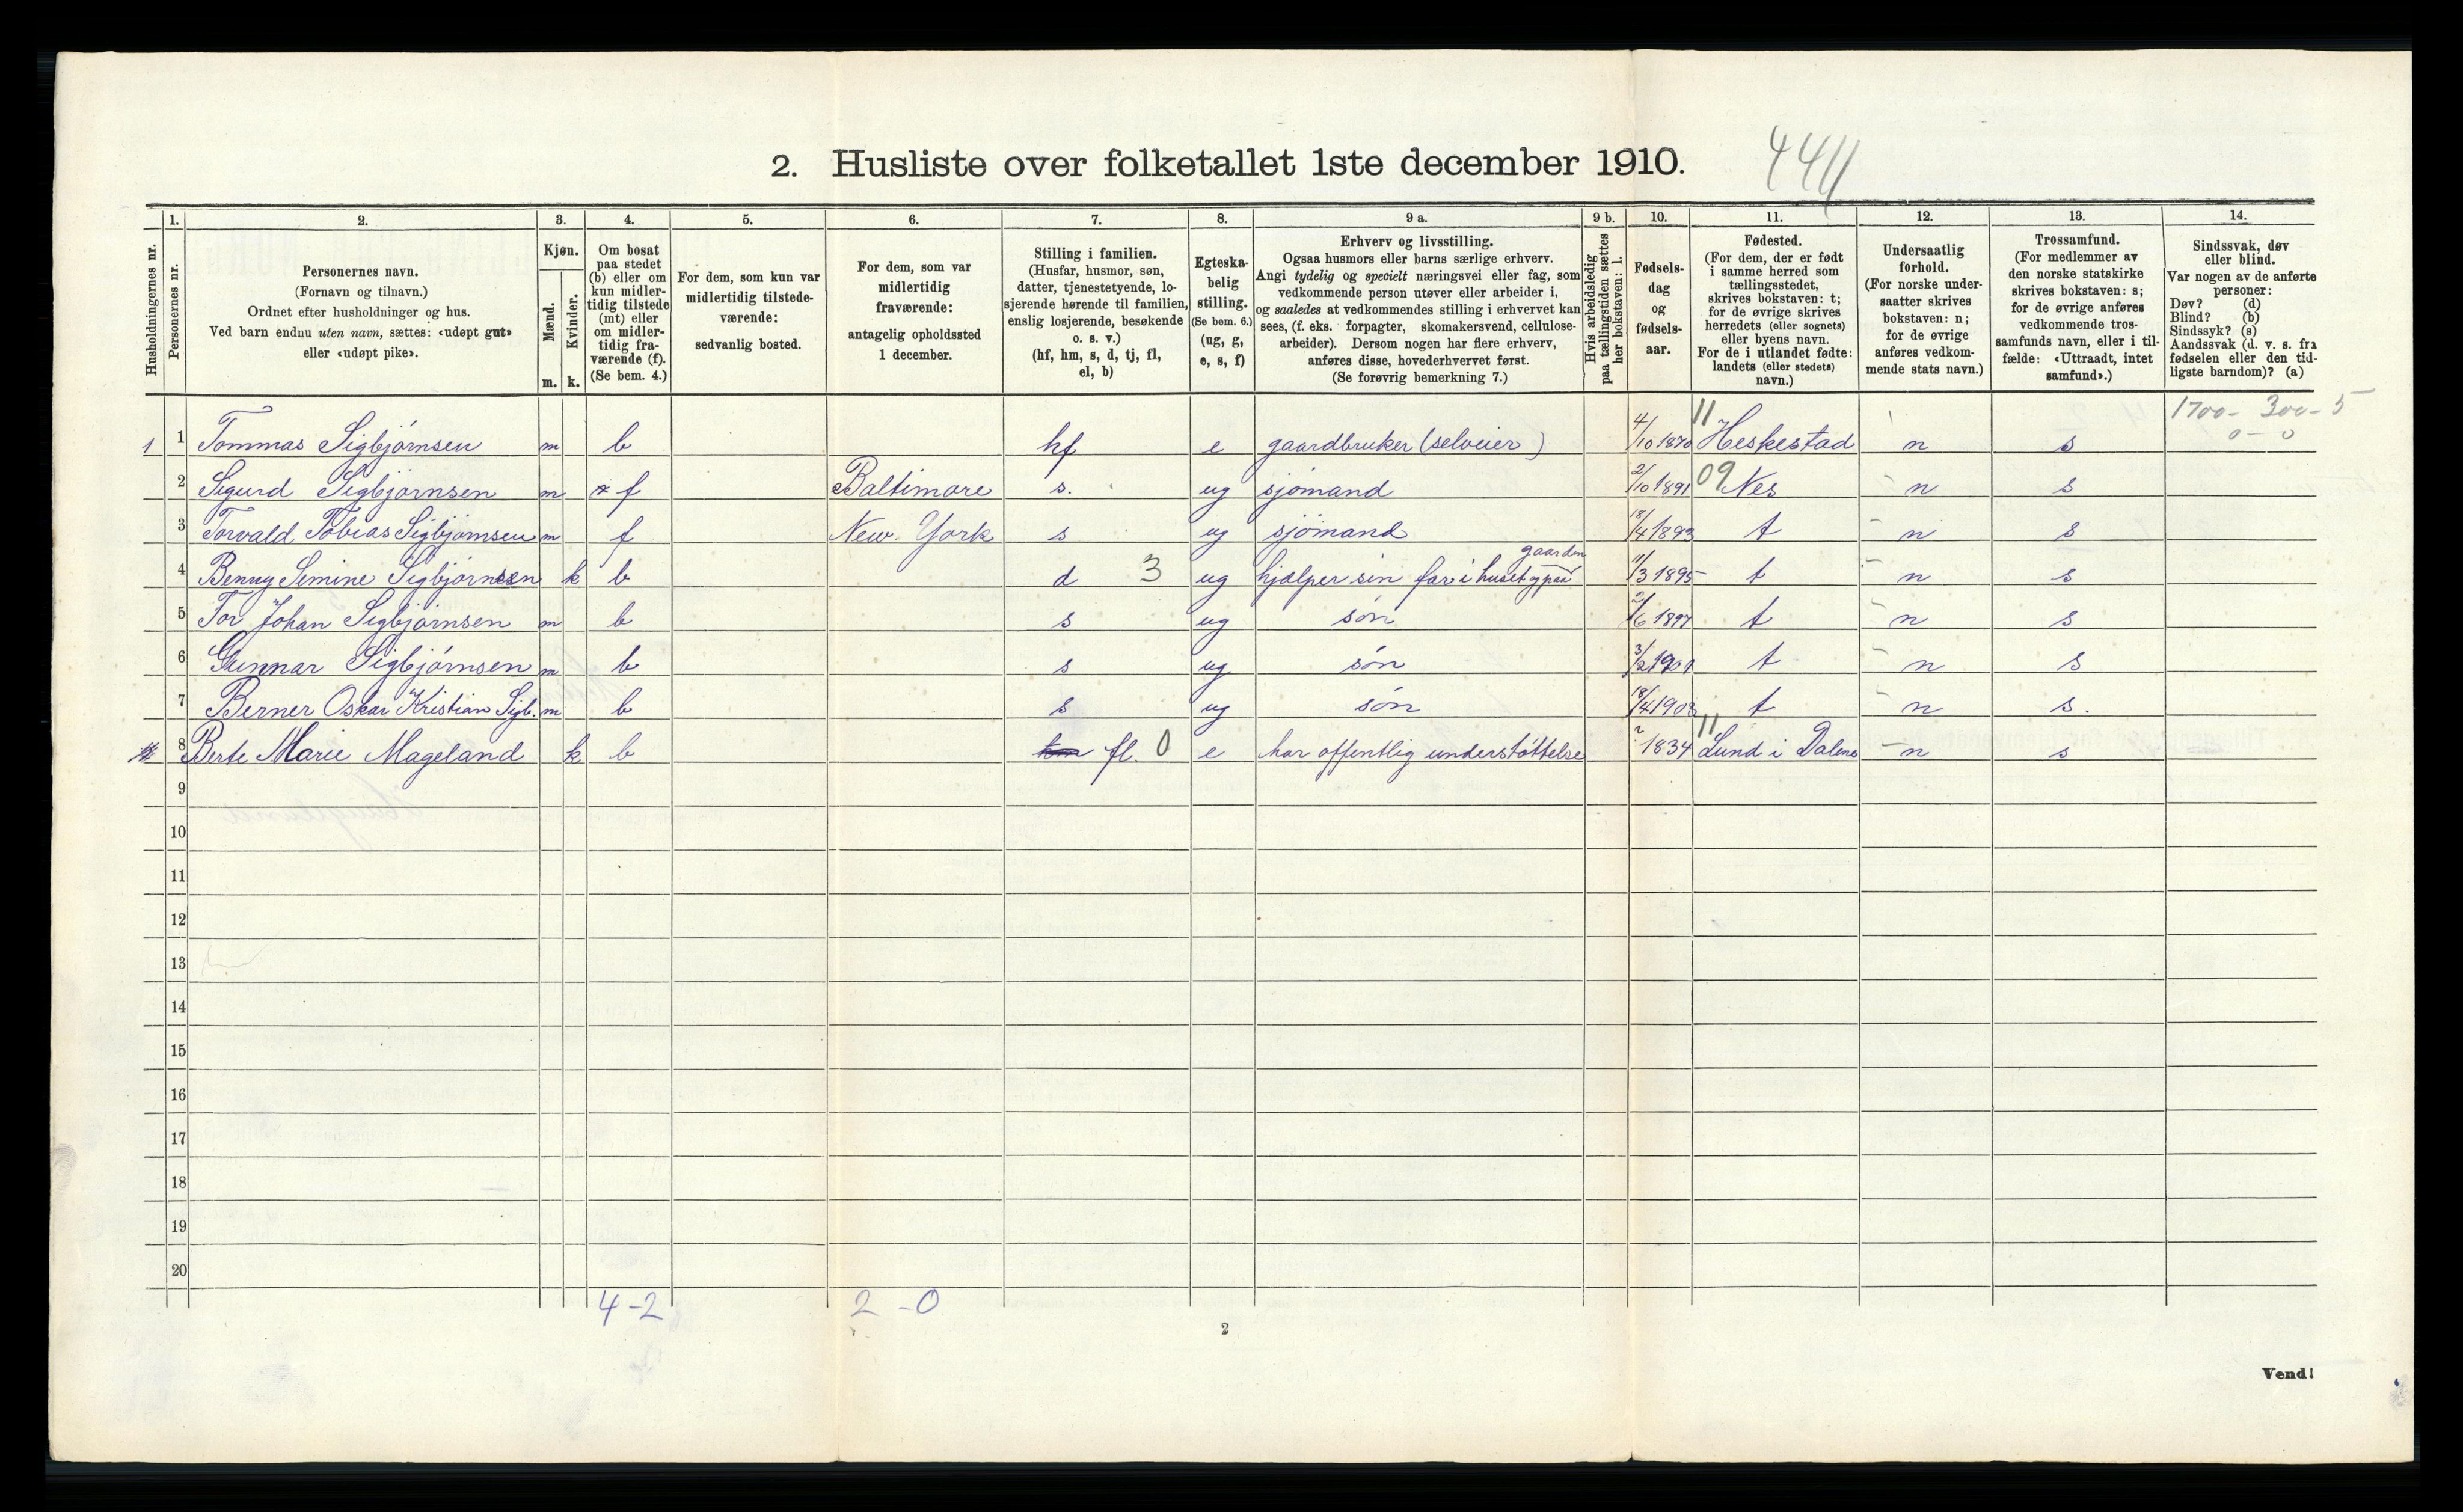 2. Husliste over folketallet 1ste december 1910.
4411
Husholdningernes nr.
1.
Personernes nr.
2.
Personernes navn.
(Fornavn og tilnavn.)
Ordnet efter husholdninger og hus.
Ved barn endnu uten navn, sættes: «udøpt gut»
eller «udøpt pike».
3.
Kjøn.
Mænd.
m.
Kvinder.
k.
4.
Om bosat
paa stedet
(b) eller om
kun midler-
tidig tilstede
(mt) eller
om midler-
tidig fra-
værende (f).
(Se bem. 4.)
5.
For dem, som kun var
midlertidig tilstede-
værende:
sedvanlig bosted.
6.
For dem, som var
midlertidig
fraværende:
antagelig opholdssted
1 december.
7.
Stilling i familien.
(Husfar, husmor, søn,
datter, tjenestetyende, lo-
sjerende hørende til familien,
enslig losjerende, besøkende
o. s. v.)
(hf, hm, s, d, tj, fl,
el, b)
8.
Egteska-
belig
stilling.
(Se bem. 6.)
(ug, g,
e, s, f)
9 a.
Erhverv og livsstilling.
Ogsaa husmors eller barns særlige erhverv.
Angi tydelig og specielt næringsvei eller fag, som
vedkommende person utøver eller arbeider i,
og saaledes at vedkommendes stilling i erhvervet kan
sees, (f. eks. forpagter, skomakersvend, cellulose-
arbeider). Dersom nogen har flere erhverv,
anføres disse, hovederhvervet først.
(Se forøvrig bemerkning 7.)
9 b.
Hvis arbeidsledig
paa tællingstiden sættes
her bokstaven: l.
10.
Fødsels-
dag
og
fødsels-
aar.
11.
Fødested.
(For dem, der er født
i samme herred som
tællingsstedet,
skrives bokstaven: t;
for de øvrige skrives
herredets (eller sognets)
eller byens navn.
For de i utlandet fødte:
landets (eller stedets)
navn.)
12.
Undersaatlig
forhold.
(For norske under-
saatter skrives
bokstaven: n;
for de øvrige
anføres vedkom-
mende stats navn.)
13.
Trossamfund.
(For medlemmer av
den norske statskirke
skrives bokstaven: s;
for de øvrige anføres
vedkommende tros-
samfunds navn, eller i til-
fælde: «Uttraadt, intet
samfund».)
14.
Sindssvak, døv
eller blind.
Var nogen av de anførte
personer:
Døv? (d)
Blind? (b)
Sindssyk? (s)
Aandssvak (d. v. s. fra
fødselen eller den tid-
ligste barndom)? (a)
1700- 300- 5
0-0
1 1 Tommas Sigbjørnsen m b hf e gaardbruker (selveier) 4/10 1870 11 Heskestad n s
2 Sigurd Sigbjørnsen m f Baltimore s. ug sjømand 2/10 1891 09 Nes n s
3 Torvald Tobias Sigbjørnsen m f New-York s ug sjømand 18/4 1893 t n s
4 Benny Semine Sigbjørnsen k b d 3 ug hjælper sin far i huset og paa gaarden 11/3 1895 t n s
5 Tor Johan Sigbjørnsen m b s ug søn 2/6 1897 t n s
6 Gunnar Sigbjørnsen m b s ug søn 3/2 1901 t n s
7 Berner Oskar Kristian Sigb. m b s ug søn 18/4 1903 t n s.
8 Berte Marie Mageland k b fl. 0 e har offentlig understøttelse ? 1834 11 Lund i Dalene n s
9
10
11
12
13
14
15
16
17
18
19
20
4-2 2-0
2
Vend!